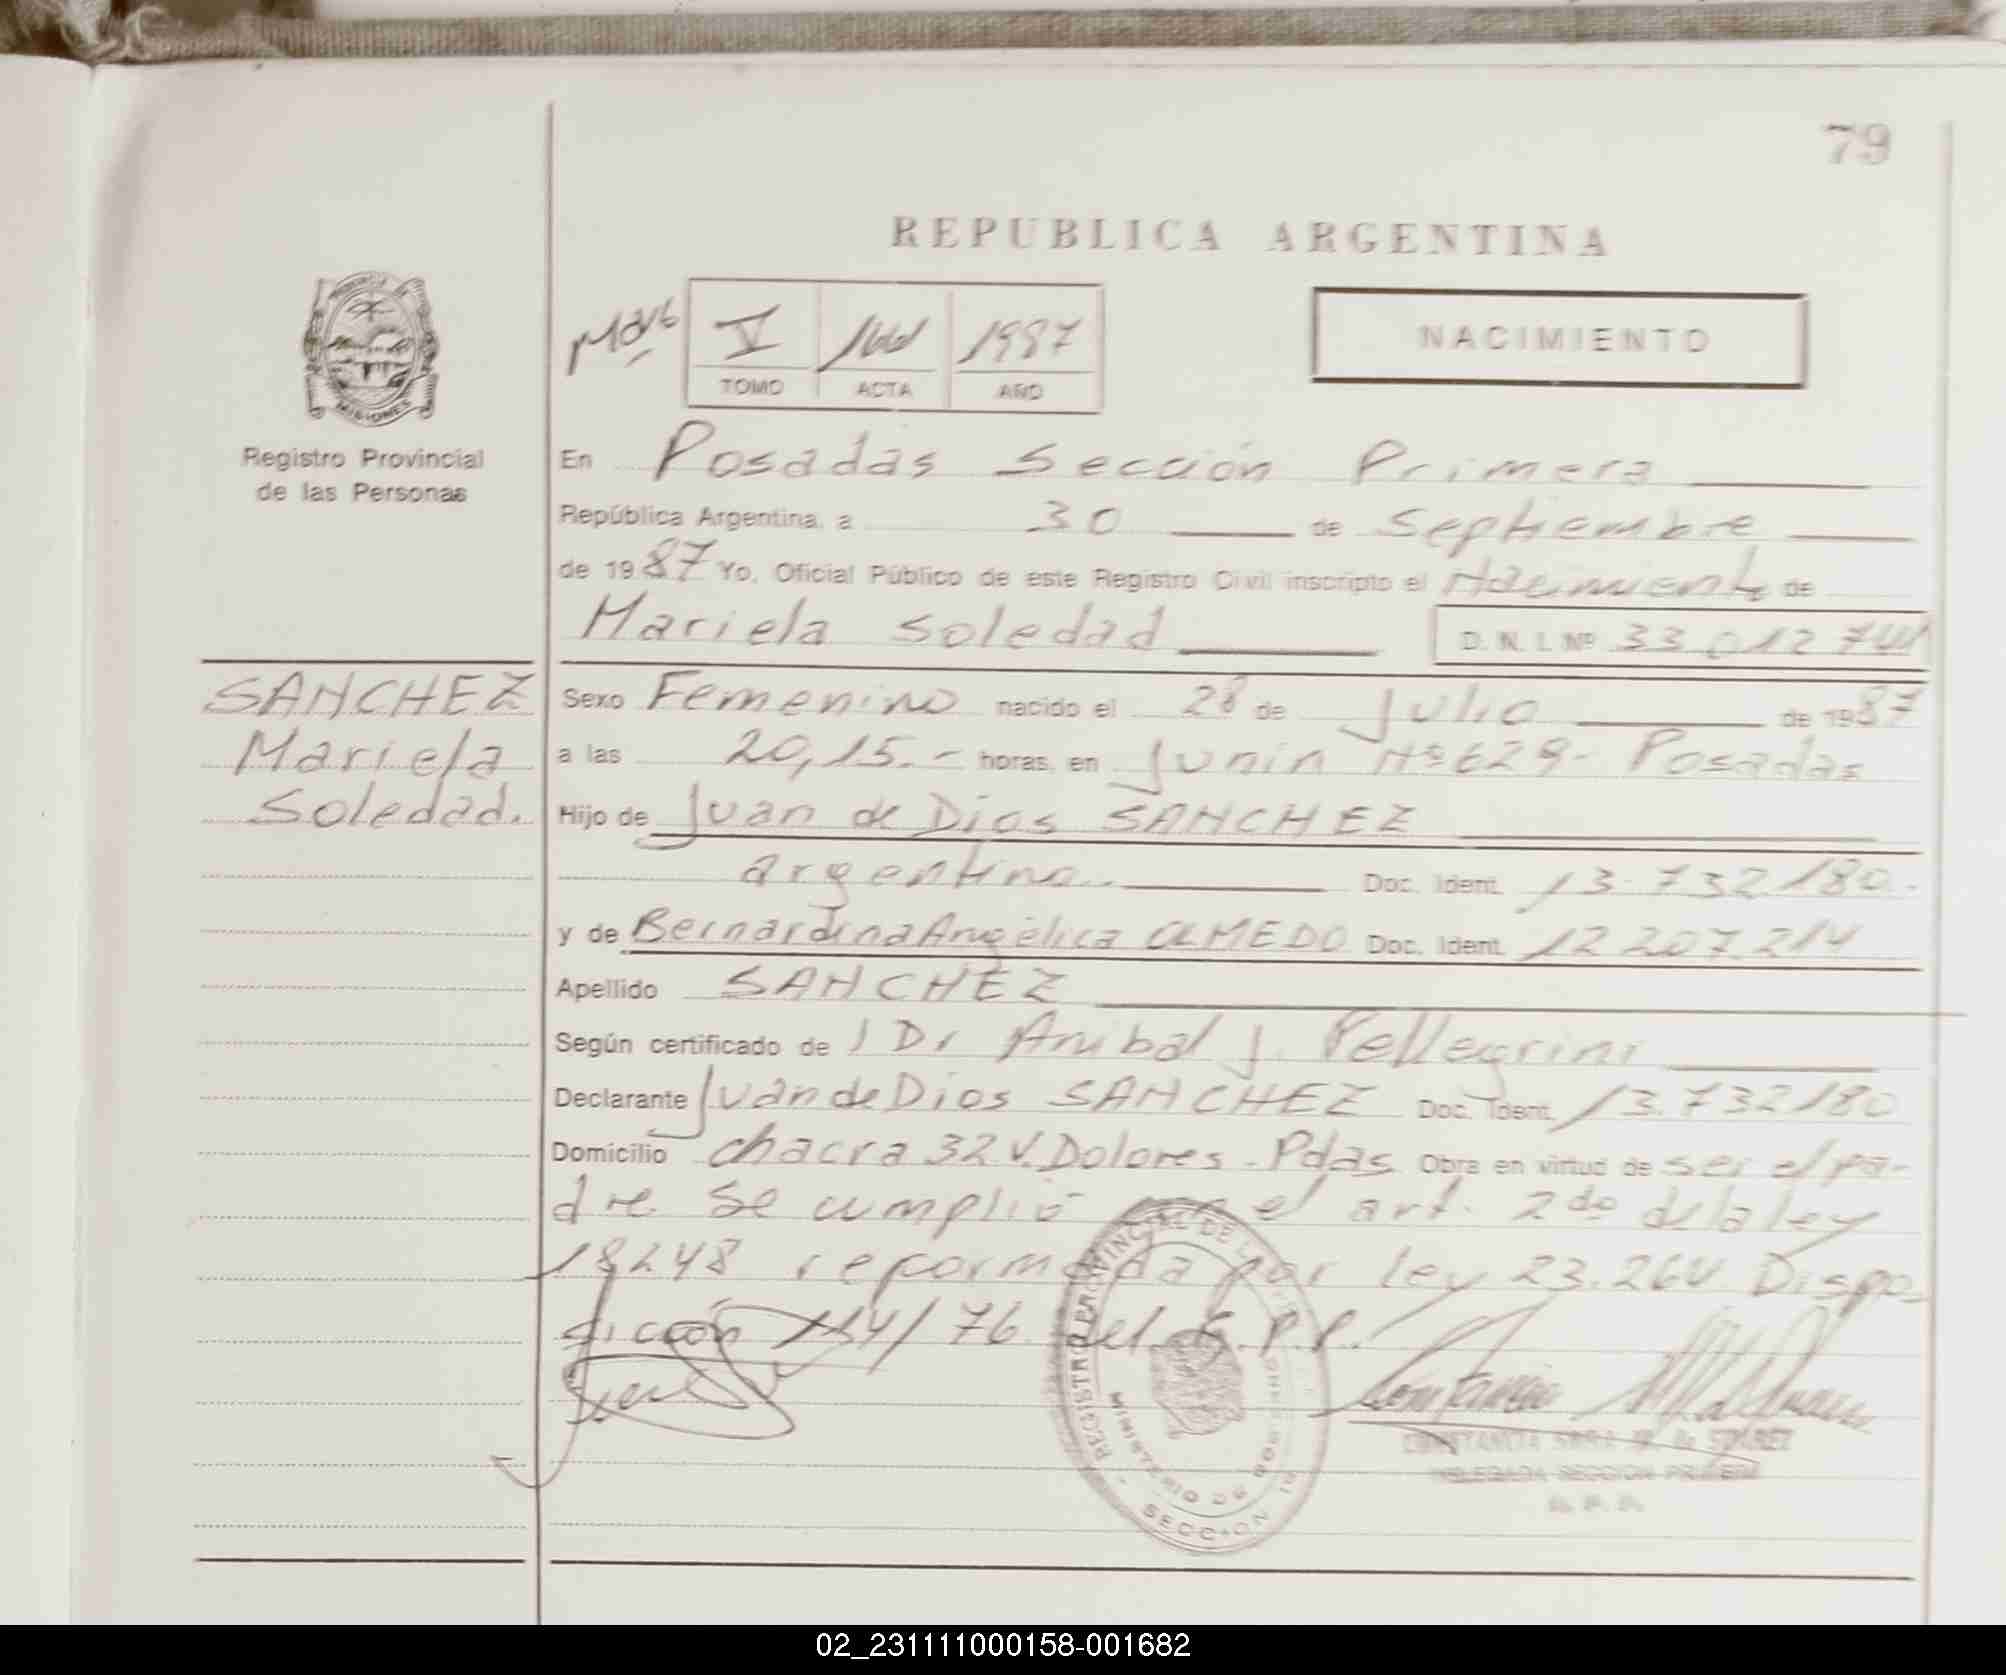 79
REPUBLICA ARGENTINA
V 1987
TOMO ACTA AÑO
NACIMIENTO
MISIONES
Registro Provincial
de las Personas
En Posadas Sección Primera
República Argentina, a 30 de Septiembre
de 1987 Yo, Oficial Público de este Registro Civil inscripto el Nacimiento de
Mariela Soledad D. N. I. Nº 33 012 744
SANCHEZ
Mariela
Soledad.
Sexo Femenino nacido el 28 de Julio de 1987
a las 20,15.- horas, en Junin Nº 629- Posadas
Hijo de Juan de Dios SANCHEZ
argentino.- Doc. Ident. 13.732 180.-
y de Bernardina Angélica OLMEDO Doc. Ident. 12 207.214
Apellido SANCHEZ
Según certificado de l Dr Anibal J. Pellegrini
Declarante Juan de Dios SANCHEZ Doc. Ident. 13.732 180
Domicilio chacra 32 V. Dolores - Pdas Obra en virtud de ser el pa-
dre se cumplió el art. 2do de la ley
18248 reformada por ley 23.264 Dispo-
sición /76 del R.P.P.
REGISTRO PROVINCIAL DE LA
MINISTERIO DE GOBIERNO
SECCION
CONSTANCIA DE SUAREZ
DELEGADA SECCION PRIMERA
R. P. P.
02_231111000158-001682